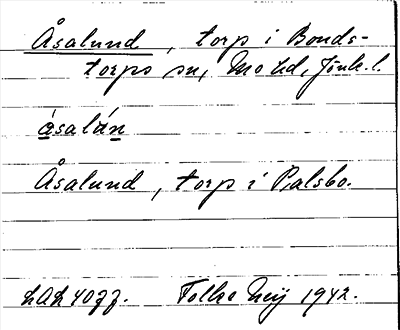 Åsalund, torp i Bonds-
torps sn, Mo hd, Jönk. l.
åsalán
Åsalund, torp i Palsbo.
Folke Meij 1942.